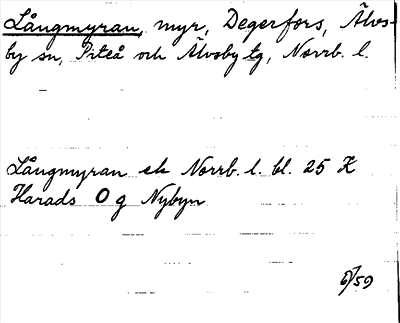 Långmyran, myr, Degerfors, Älvs-
by sn, Piteå och Älvsby tg, Norrb. l.
Långmyran ek Norrb. l. bl. 25 K
Harads O g Nybyn
6/59